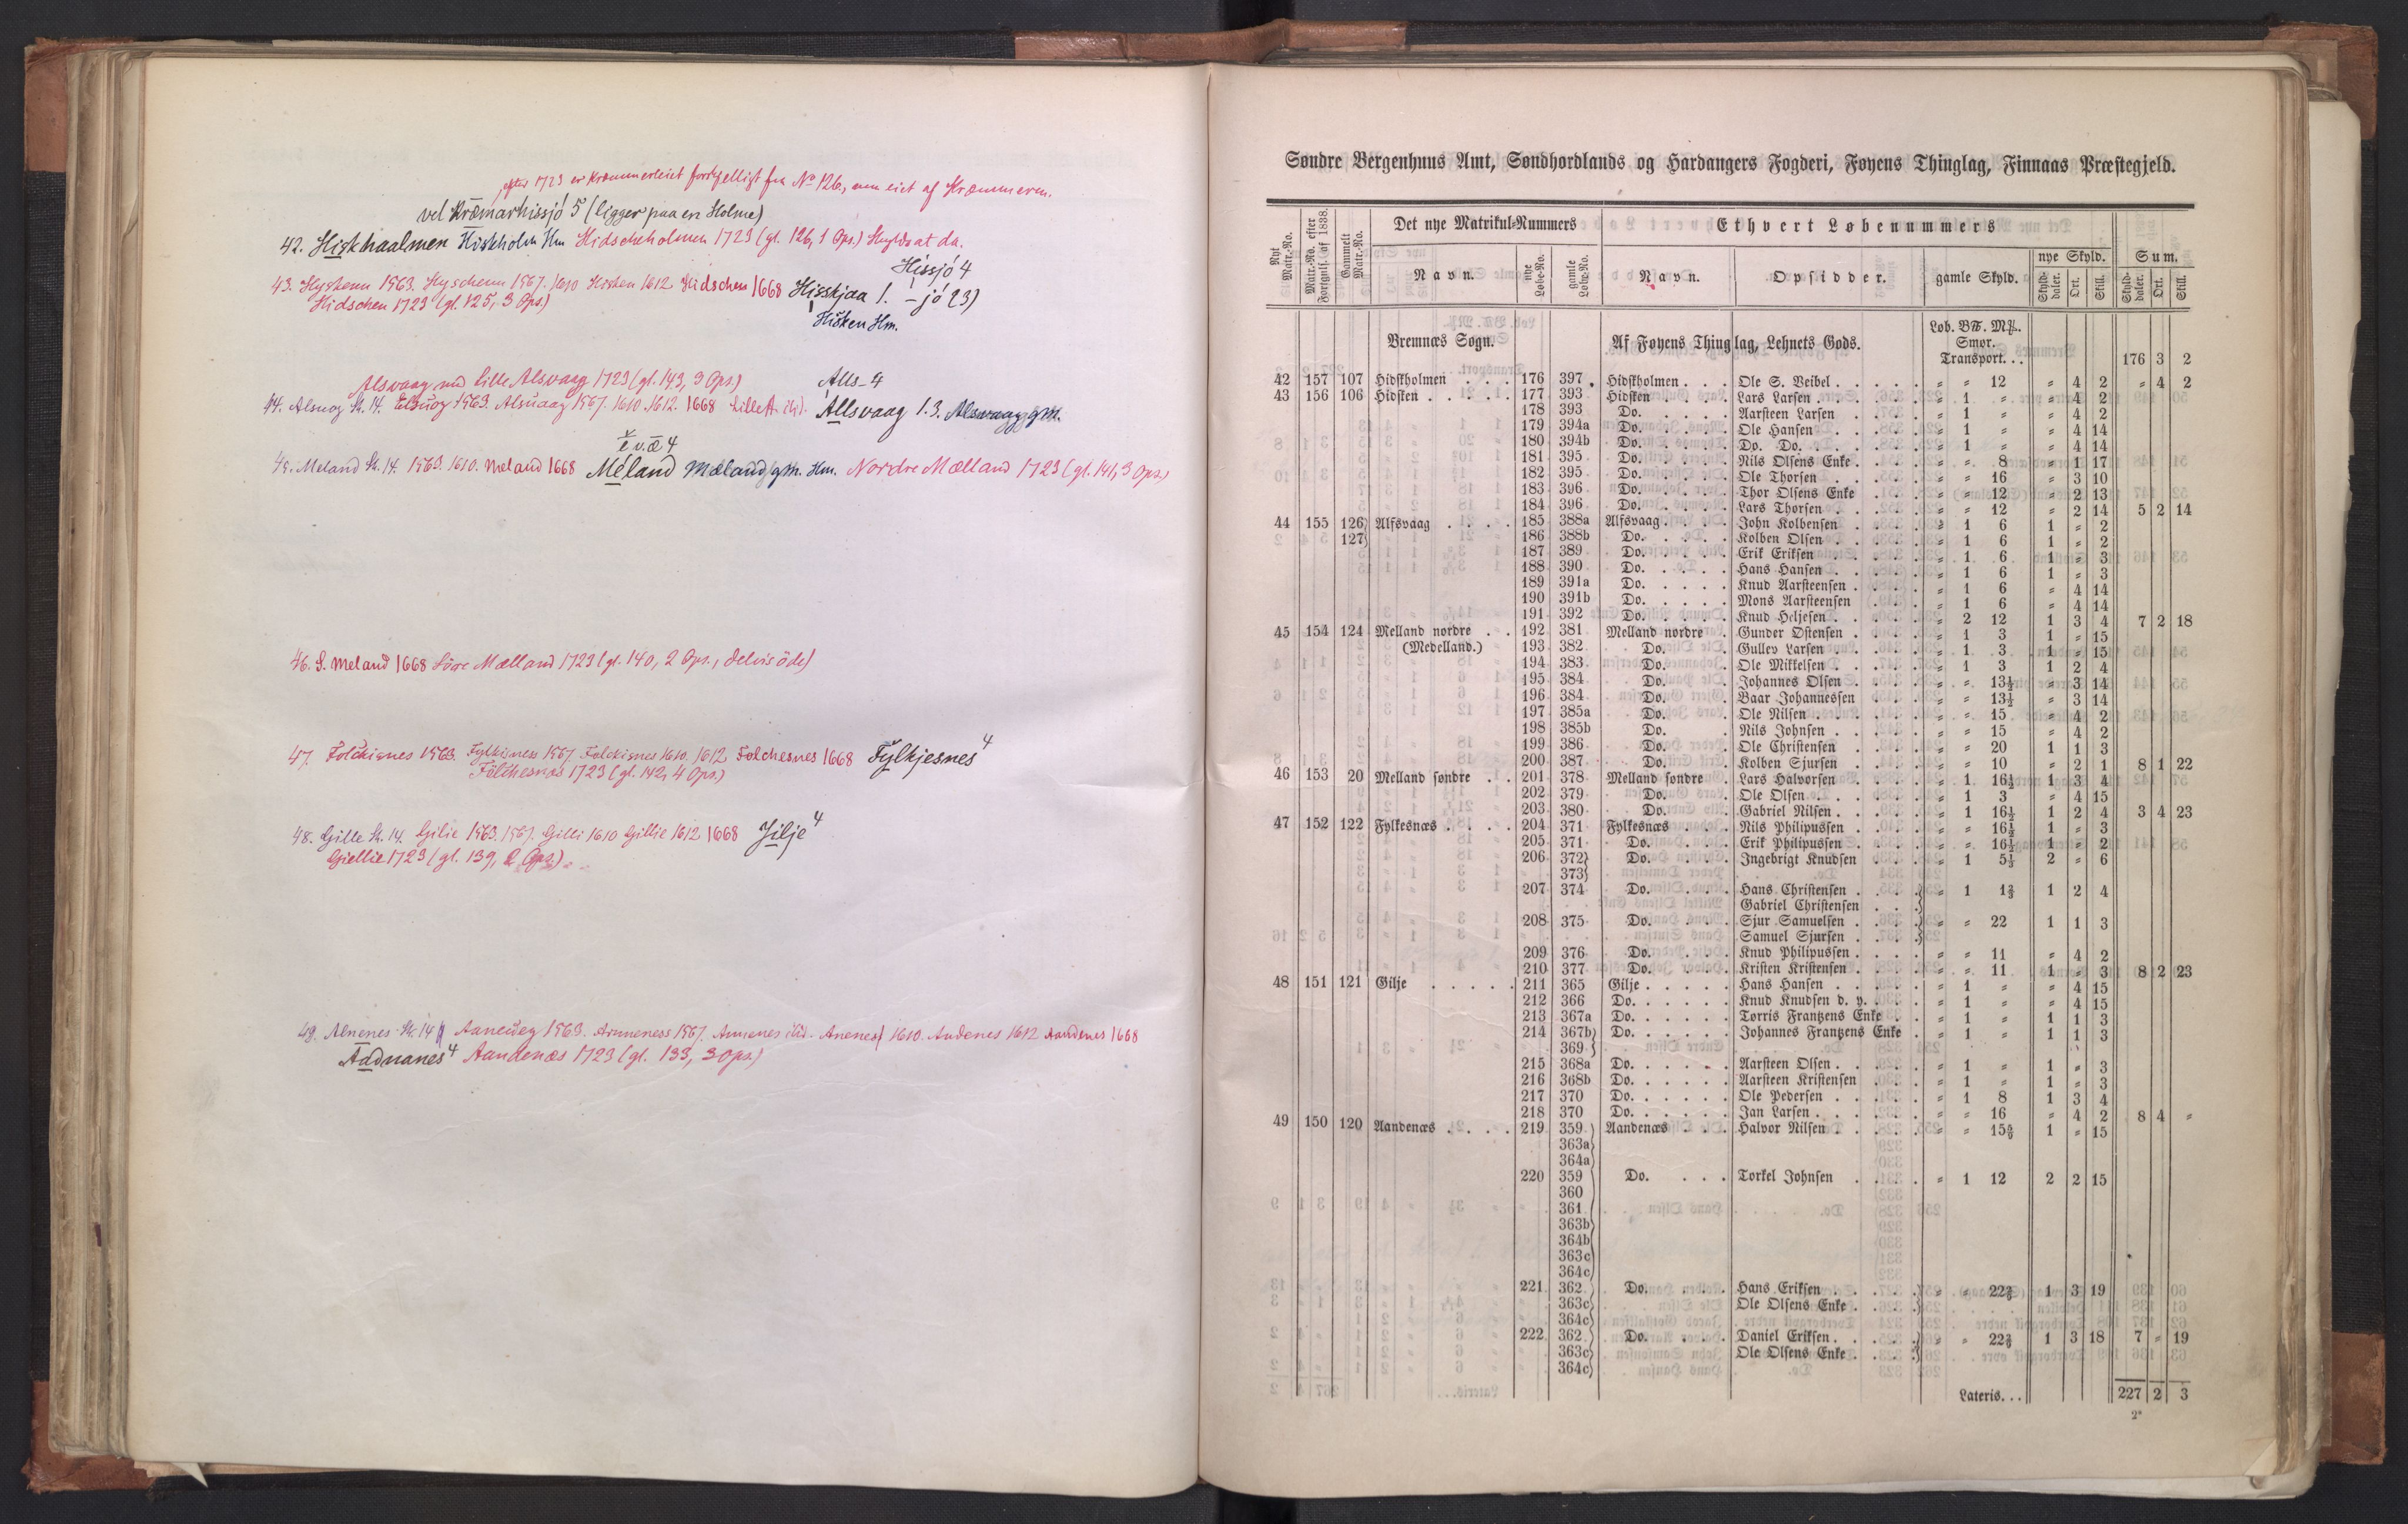 efter 1723 er Kræmmerleiet forskjelligt fra No 126, men eiet af Kræmmeren.
vel Kræmarhissjó 5 (ligger paa en Holme)
42. Hiskhaalmen Hiskholm Hm Hidscheholmen 1723 (gl. 126, 1 Ops.)
Hissjó 4
43. Hysthenn 1563. Hyschenn 1567. 1610 Hisken 1612. Hidschen 1668 Hisskjaa 1. – jó (3)
Hidschen 1723 (gl. 125, 3 Ops.)
Hisken Hm.
Alsvaag med Lille Alsvaag 1723 (gl. 143, 9 Ops.) Alls– 4
44. Alsuog St. 14. Elsuog 1563. Alsuaag 1567. 1610. 1612. 1668 Lille A. ibd. Allsvaag 1.3. Alsvaag gm.
e v. æ 4
45. Meland St. 14. 1563. 1610. Meland 1668 Méland Mæland gm. Hm. Nordre Mælland 1723 (gl. 141, 3 Ops.)
46. S. Meland 1668 Söre Mælland 1723 (gl. 140, 2 Ops., delvis öde)
47. Folckisnes 1563. Fylkisness 1567. Folckisnes 1610. 1612. Folchesnes 1668 Fylkjesnes 4
Fölchesnæs 1723 (gl. 142, 4 Ops.)
48. Gille St. 14. Gilie 1563. 1567. Gilli 1610 Gillie 1612 1668 Jilje 4
Giellie 1723 (gl. 139, 2 Ops.)
49. Alnenes St. 14 Aaneueg 1563. Arnneness 1567. Annenes ibd. Anenes 1610. Andenes 1612 Aandenes 1668
Aadnanes 4 Aandenæs 1723 (gl. 133, 3 Ops.)
Søndre Bergenhuus Amt, Søndhordlands og Hardangers Fogderi, Føyens Thinglag, Finnaas Præstegjeld.
Nyt Matr.-No. Matr.-No. efter Fortegnls. af 1838. Gammelt Matr.-No. Det nye Matrikul-Nummers Ethvert Løbenummers
Navn. nye Løbe-No. gamle Løbe-No. Navn. Opsidder. gamle Skyld. nye Skyld. Sum.
Skylddaler. Ort. Skill. Skylddaler. Ort. Skill.
Bremnæs Sogn. Af Føyens Thinglag, Lehnets Gods. Løb. B℔. M℔.
Smør.
Transport. . . 176 3 2
42 157 107 Hidskholmen . . . 176 397 Hidskholmen . . . Ole S. Veibel . . . " " 12 " 4 2 " 4 2
43 156 106 Hidsken . . . 177 393 Hidsken . . . Lars Larsen . . . " 1 " " 4 2
178 393 Do. . . . Aarsteen Larsen . . " 1 " " 4 2
179 394a Do. . . . Ole Hansen . . . " 1 " " 4 14
180 394b Do. . . . Do. Do. . . . " 1 " " 4 14
181 395 Do. . . . Nils Olsens Enke . . " " 8 " 1 17
182 395 Do. . . . Ole Thorsen . . . " " 16 " 3 10
183 396 Do. . . . Thor Olsens Enke . . " " 12 " 2 13
184 396 Do. . . . Lars Thorsen . . . " " 12 " 2 14 5 2 14
44 155 126} Alfsvaag . . . 185 388a Alfsvaag . . . John Kolbensen . . . " 1 6 1 " 2
127} 186 388b Do. . . . Kolben Olsen . . . " 1 6 1 " 2
187 389 Do. . . . Erik Eriksen . . . " 1 6 1 " 3
188 390 Do. . . . Hans Hansen . . . " 1 6 1 " 3
189 391a Do. . . . Knud Aarsteensen . . " 1 6 " 4 14
190 391b Do. . . . Mons Aarsteensen . . " 1 6 " 4 14
191 392 Do. . . . Knud Heljesen . . . " 2 12 1 3 4 7 2 18
45 154 124 Melland nordre . . 192 381 Melland nordre . Gunder Ostensen . . . " 1 3 1 " 15
(Medelland.) 193 382 Do. Gullev Larsen . . . " 1 3 1 " 15
194 383 Do. Ole Mikkelsen . . . " 1 3 1 2 4
195 384 Do. Johannes Olsen . . . " " 13½ " 3 14
196 384 Do. Baar Johannessen . . " " 13½ " 3 14
197 385a Do. Ole Nilsen . . . " " 15 " 4 2
198 385b Do. Nils Johnsen . . . " " 15 " 4 2
199 386 Do. Ole Christensen . . . " " 20 1 1 3
200 387 Do. Kolben Sjursen . . . " " 10 " 2 1 8 1 22
46 153 20 Melland søndre . . 201 378 Melland søndre . Lars Halvorsen . . . " 1 16½ 1 3 4
202 379 Do. Ole Olsen . . . " 1 3 " 4 15
203 380 Do. Gabriel Nilsen . . . " 1 16½ 1 2 4 3 4 23
47 152 122 Fylkesnæs . . . 204 371 Fylkesnæs . . . Nils Philipussen . . . " " 16½ 1 " 3
205 371 Do. . . . Erik Philipussen . . . " " 16½ 1 " 2
206 372} Do. . . . Ingebrigt Knudsen . . " 1 5⅓ 2 " 6
373}
207 374 Do. . . . Hans Christensen . . } " 1 1⅔ 1 2 4
Gabriel Christensen . . }
208 375 Do. . . . Sjur Samuelsen . . } " " 22 1 1 3
Samuel Sjursen . . }
209 376 Do. . . . Knud Philipussen . . . " " 11 " 4 2
210 377 Do. . . . Kristen Kristensen . . " " 11 1 " 3 8 2 23
48 151 121 Gilje . . . 211 365 Gilje . . . Hans Hansen . . . " 1 " " 4 15
212 366 Do. . . . Knud Knudsen d. y. . . " 1 " " 4 15
213 367a Do. . . . Torris Frantzens Enke . . " 1 " 1 1 3
214 367b} Do. . . . Johannes Frantzens Enke . " 1 " 1 1 3
369}
215 368a Do. . . . Aarsteen Olsen . . . " 1 " 1 " 3
216 368b Do. . . . Aarsteen Kristensen . . " 1 " 1 " 3
217 370 Do. . . . Ole Pedersen . . . " 1 8 1 3 4
218 370 Do. . . . Jan Larsen . . . " " 16 " 4 2 8 4 "
49 150 120 Aandenæs . . . 219 359} Aandenæs . . . Halvor Nilsen . . . " " 1 " 15
363a}
364a}
220 359 Do. . . . Torkel Johnsen . . . " 1 12 2 2 15
360
361
363b
364b
363c
364c
221 362 Do. . . . Hans Eriksen . . . } " " 1 3 19
363c Ole Olsens Enke . . }
364c
222 362 Do. . . . Daniel Eriksen . . . } " " 1 3 18 7 " 19
363c Ole Olsens Enke . . }
364c
Lateris. . . 227 2 3
2*